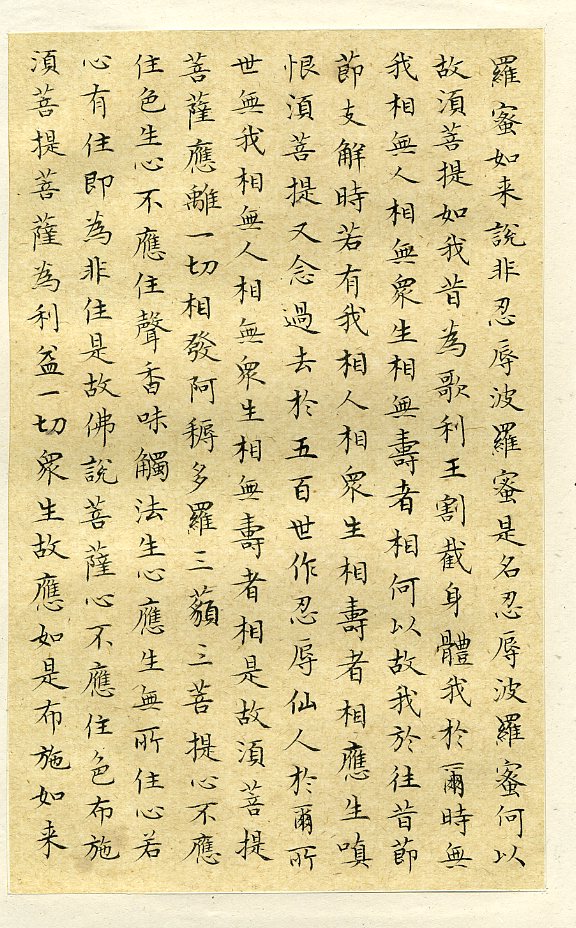 羅蜜如来說非忍辱波羅蜜是名忍辱波羅蜜何以
故湏菩提如我昔為歌利王割截身體我於爾時無
我相無人相無眾生相無壽者相何以故我於往昔節
節支解時若有我相人相眾生相壽者相應生嗔
恨湏菩提又念過去於五百世作忍辱仙人於爾所
世無我相無人相無眾生相無壽者相是故湏菩提
菩薩應離一切相發阿耨多羅三藐三菩提心不應
住色生心不應住聲香味觸法生心應生無所住心若
心有住即為非住是故佛說菩薩心不應住色布施
湏菩提菩薩為利益一切眾生故應如是布施如来